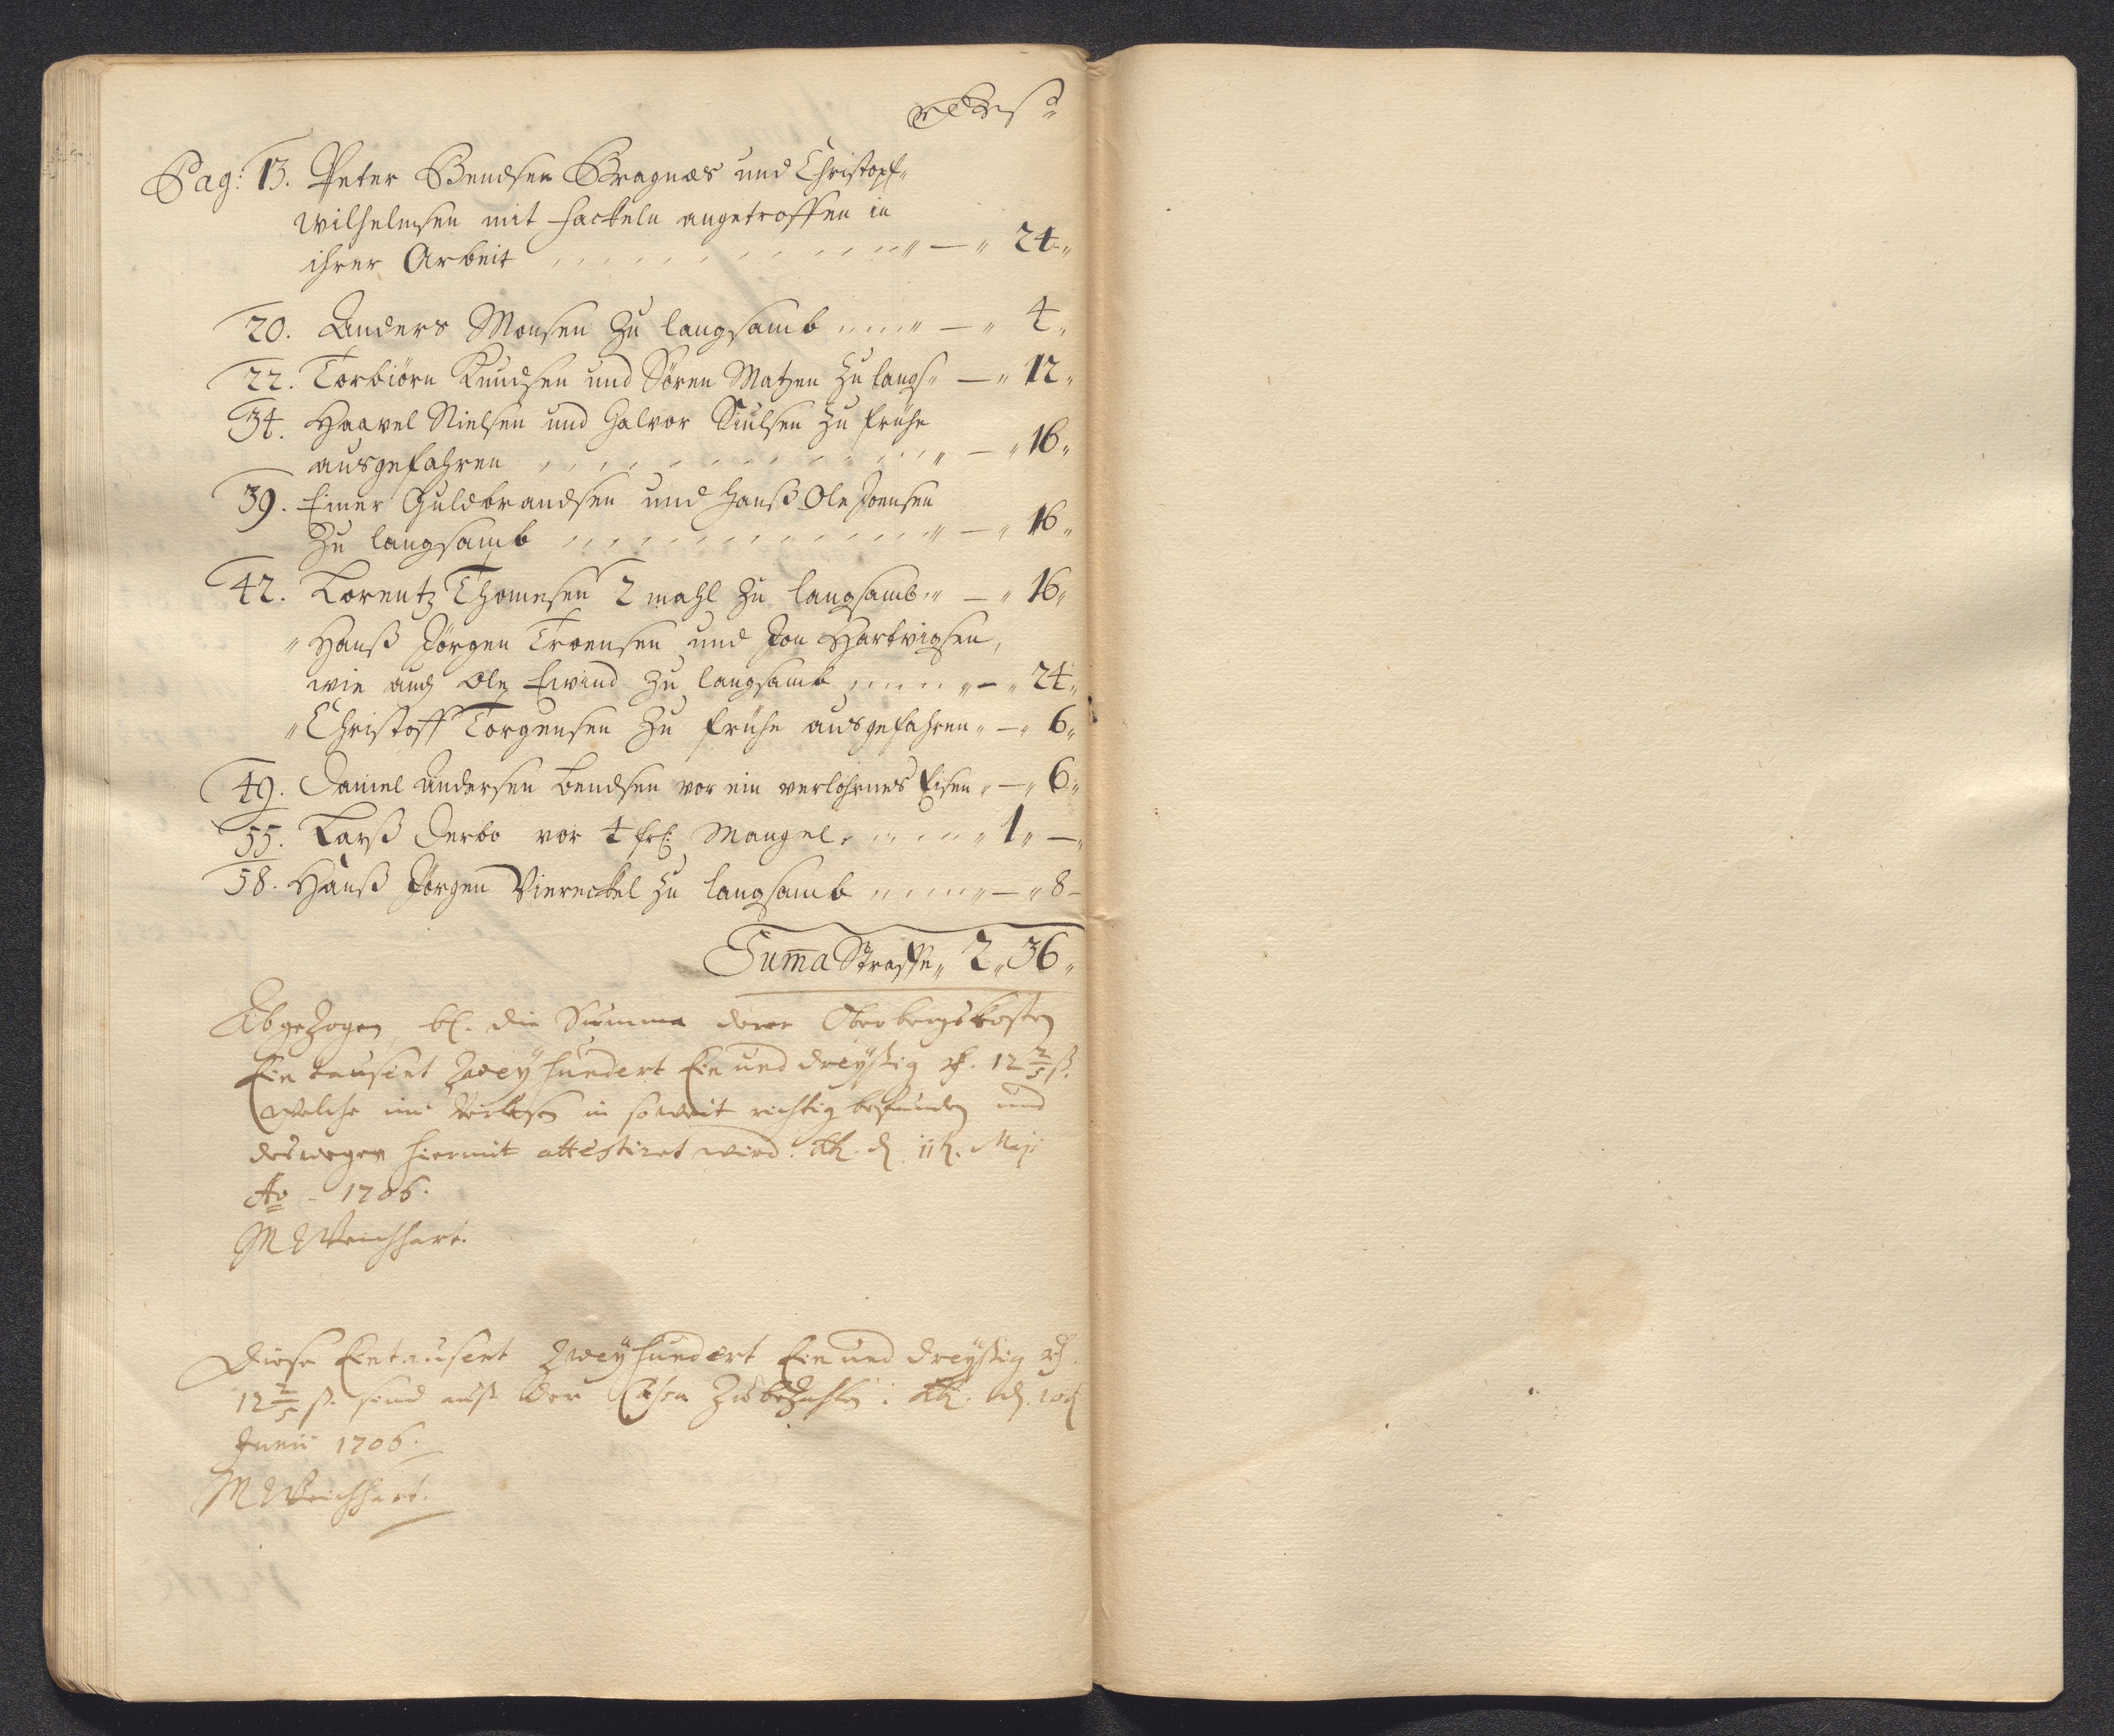 Pag: 13. Peter Bendsen Bragnæs und Christopf
Wilhelmsen mit Fackeln angetroffen in
ihrer Arbeit „ — „ 24 „
20. Anders Monsen zu langsamb „ — „ 4 „
22. Torbiörn Knudsen und Sören Matzen zu langs „ — „ 12 „
34. Haavel Nielsen und Halvor Siulsen zu frühe
ausgefahren „ — „ 16 „
39. Einer Guldbrandsen und Hanß Ole Joensen
zu langsamb „ — „ 16 „
42. Lorentz Thomesen 2 mahl zu langsamb „ — „ 16 „
„ Hanß Jörgen Troensen und Jon Hartvigsen,
wie auch Ole Eivind zu langsamb „ — „ 24 „
„ Christoff Torgensen zu frühe ausgefahren „ — „ 6 „
49. Daniel Andersen Bendsen vor ein verlohrnes Eisen „ — „ 6 „
55. Larß Derbo vor 4 Mangel „ 1 „ —
58. Hanß Jörgen Viereckel zu langsamb „ — „ 8 –
Suma Straffe „ 2 „ 36 „
Abgezogen, bl. die Summa derer Oberbergskosten
Ein tausent Zweÿ hundert Ein und dreÿssig 12 2/5 ß.
Welche im Verlesen in soweit richtig befunden und
deswegen hiermit attestiret wird. d. 11t. Maji
Ao 1706.
M Weichhart.
Diese Eintausent Zweÿhundert Ein und dreÿssig
12 2/5 ß. sind auß der Cassa zu bezahlen. d. 10t
Junii 1706.
M Weichhart.